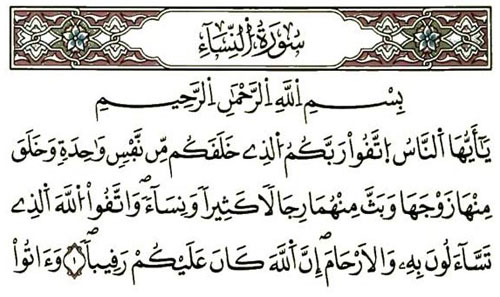 سُورَةُ النِّسَاءِ
بِسْمِ اللَّهِ الرَّحْمَٰنِ الرَّحِيمِ
يَٰٓأَيُّهَا النَّاسُ اتَّقُوا۟ رَبَّكُمُ الَّذِے خَلَقَكُم مِّن نَّفْسٍ وَٰحِدَةٍ وَخَلَقَ
مِنْهَا زَوْجَهَا وَبَثَّ مِنْهُمَا رِجَالًا كَثِيرًا وَنِسَآءً وَاتَّقُوا۟ اللَّهَ الَّذِے
تَسَّآءَلُونَ بِهِۦ وَالْأَرْحَامَ إِنَّ اللَّهَ كَانَ عَلَيْكُمْ رَقِيبًا ١ وَءَاتُوا۟